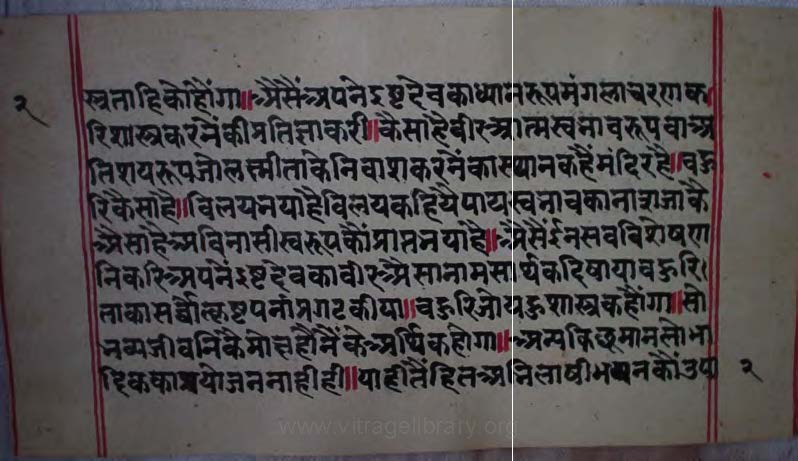 २
स्वताहि कोहौंगा॥ अैसैं अपने इष्ट देवका ध्यानरूप मंगलाचरण क
रि शास्त्र करनेंकी प्रतिज्ञा करी॥ कैसा है वीर आत्मस्वभावरूप वा अ
तिशयरूप जो लक्ष्मी ताके निवाश करनेंका स्थानक है मंदिर है॥ वहु
रि कैसा है॥ विलय भया है विलय कहियै पाप स्वभावका नाश जाकै
अैसा है अविनासी स्वरूपकौं प्राप्त भया है॥ अैसैं ईन सव विशेषण
निकरि अपनें इष्ट देवका वीर अैसा नाम सार्थक दिषाया वहुरि।
ताका सर्वोत्कृष्टपनां प्रगट कीया॥ वहुरि जो यहु शास्त्र कहौंगा॥ सो
भव्य जीवनिकै मोक्ष होनैंके अर्थि कहोगा॥ अन्य किछु मान लोभा
दिकका प्रयोजन नाही ही॥ याहीतैं हित अभिलाषी भव्यनकौं उपा
२
www.vitragelibrary.org